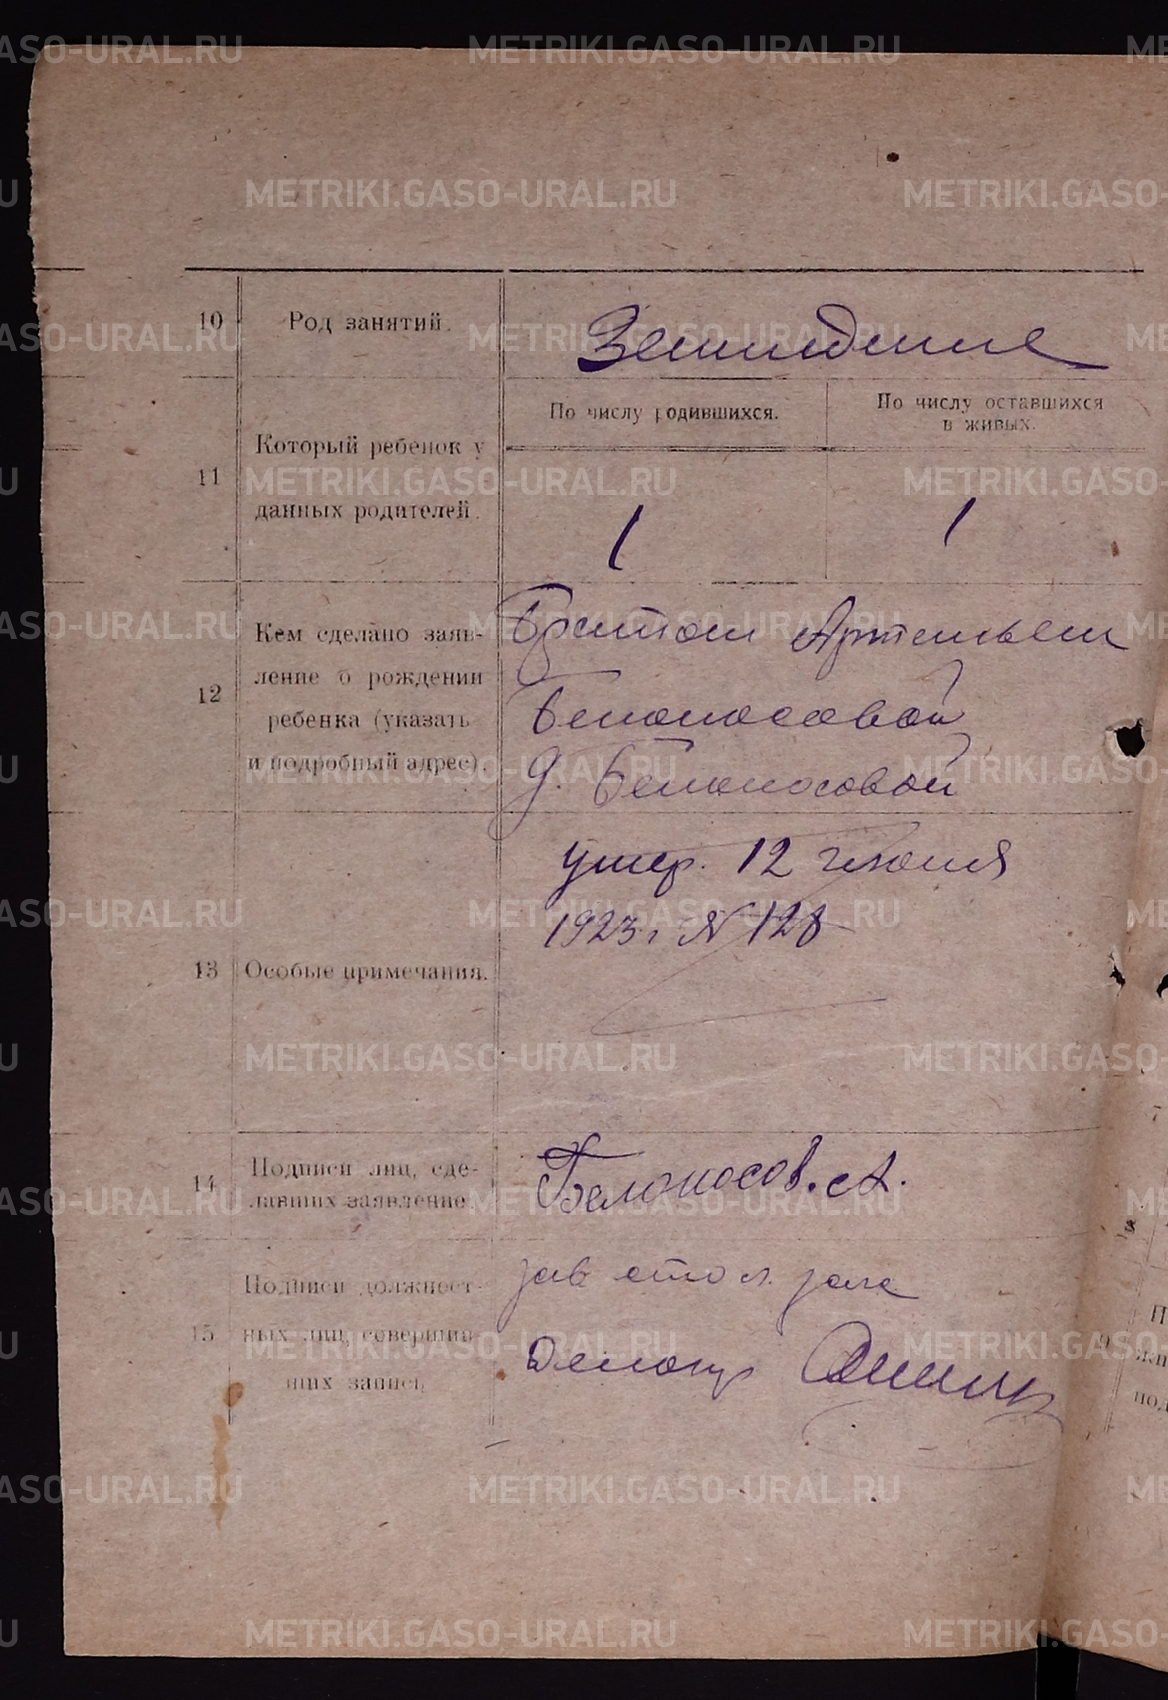 10 Род занятий. Земледелие
По числу родившихся. По числу оставшихся
в живых.
11 Который ребенок у
данных родителей. 1 1
12 Кем сделано заяв-
ление о рождении
ребенка (указать
и подробный адрес).
Братом Артемьем
Белоносовой
д. Белоносовой
13 Особые примечания.
умер. 12 июня
1923 г. № 128
14 Подписи лиц, сде-
лавших заявление.
Белоносов. А.
15 Подписи должност-
ных лиц, совершив-
ших запись.
зав стол. загс
METRIKI.GASO-URAL.RU